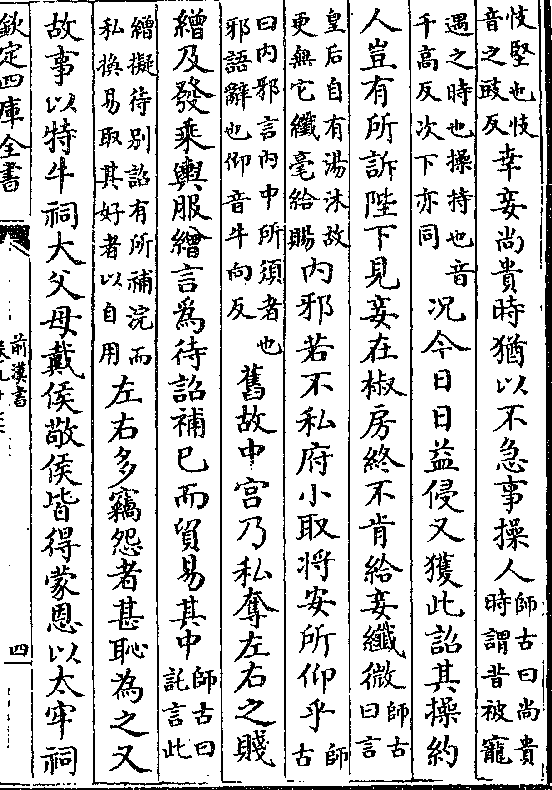 忮堅也忮音之豉反幸妾尚貴時猶以不急事操人師古曰尚貴時謂昔被寵
遇之時也操持也音千高反次下亦同况今日日益侵又獲此詔其操約
人豈有所訴陛下見妾在椒房終不肯給妾纖微師古曰言
皇后自有湯沐故更無它纖毫給賜内邪若不私府小取將安所仰乎師古
曰内邪言内中所須者也邪語辭也仰音牛向反舊故中宫乃私奪左右之賤
繒及發乘輿服繒言為待詔補已而貿易其中師古曰託言此
繒擬待别詔有所補浣而私換易取其好者以自用左右多竊怨者甚恥為之又
故事以特牛祠大父母戴侯敬侯皆得蒙恩以太牢祠
欽定四庫全書
前漢書
四